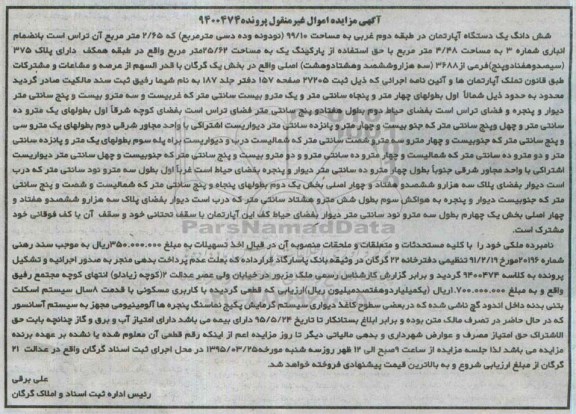 آگهی مزایده اموال غیرمنقول پرونده ۹۴۰۰۴۷۴
شش دانگ یک دستگاه آپارتمان در طبقه دوم غربی به مساحت ۹۹/۱۰ (نودونه وده دسی مترمربع) که ۲/۶۵ متر مربع آن تراس است بانضمام
انباری شماره ۳ به مساحت ۴/۴۸ متر مربع با حق استفاده از پارکینگ یک به مساحت ۲۵/۶۲متر مربع واقع در طبقه همکف دارای پلاک ۳۷۵
(سیصدوهفتادوپنج)فرعی از۳۶۸۸ (سه هزاروششصد وهشتادوهشت) اصلی واقع در بخش یک گرگان با قدر السهم از عرصه و مشاعات و مشترکات
طبق قانون تملک آپارتمان ها و آئین نامه اجرائی که ذیل ثبت ۲۷۲۰۵ صفحه ۱۵۷ دفتر جلد ۱۸۷ به نام شیما رفیق ثبت سند مالکیت صادر گردید
محدود به حدود ذیل شمالاً اول بطولهای چهار متر و پنجاه سانتی متر و یک مترو بیست سانتی متر که غربیست و سه مترو بیست و پنج سانتی متر
دیوار و پنجره و فضای تراس است بفضای حیاط دوم بطول هفتادو پنج سانتی متر فضای تراس است بفضای کوچه شرقاً اول بطولهای یک مترو ده
سانتی متر و چهل وپنج سانتی متر که جنو بیست و چهار مترو پانزده سانتی متر دیواریست اشتراکی با واحد مجاور شرقی دوم بطولهای یک مترو سی
و پنج سانتی متر که جنوبیست و چهار مترو سی و شصت سانتی متر که شمالیست درب و دیواریست براه پله سوم بطولهای یک متر و پانزده سانتی
متر و دو مترو ده سانتی متر و چهار مترو ده سانتی مترو و دو مترو بیست و پنج سانتی متر که جنوبیست و چهل سانتی متر دیواریست
اشتراکی با واحد مجاور شرقی جنوباً بطول چهار مترو ده سانتی متر دیوار و پنجره بفضای حیاط است غرباً اول بطول سه مترو نود سانتی متر که درب
است دیوار بفضای پلاک سه هزارو ششصدو هفتاد و چهار اصلی بخش یک دوم بطولهای پنجاه و پنج سانتی متر که شمالیست و شصت و پنج سانتی
متر که جنوبیست دیوار و پنجره به هواکش سوم بطول شش مترو هشتاد سانتی متر که درب است دیوار بفضای پلاک سه هزارو ششصدو هفتاد و
چهار اصلی بخش یک چهارم بطول سه مترو نود سانتی متر دیوار بفضای حیاط کف این آپارتمان با سقف تحتانی خود و سقف آن با کف فوقانی خود
مشترک است.
نامبرده ملکی خود را با کلیه مستحدثات و متعلقات و ملحقات منصوبه آن در قبال اخذ تسهیلات به مبلغ ۳۵۰.۰۰۰.۰۰۰ریال به موجب سند رهنی
شماره۲۰۱۹۶مورخ ۹۱/۲/۱۹ تنظیمی دفترخانه ۲۲ گرگان در وثیقه بانک پاسارگاد قرارداده که بعلت عدم پرداخت بدهی منجر به صدور اجرائیه و تشکیل
پرونده به کلاسه ۹۴۰۰۴۷۴ گردید و برابر گزارش کارشناس رسمی ملک مزبور در خیابان ولی عصر عدالت ۲(کوچه زیادلو) انتهای کوچه مجتمع رفیق
واقع و به مبلغ ۱.۷۰۰.۰۰۰.۰۰۰ریال (یکمیلیاردوهفتصدمیلیون ریال)ارزیابی که قطعی گردیده با کاربری مسکونی با قدمت ۸سال سیستم اسکلت
بتنی بدنه داخل اندود گچ ناشی شده که دربعضی سطوح کاغذ دیواری،سیستم گرمایش پکیج نماسنگ پنجره ها آلومینیومی مجهز به سیستم آسانسور
که در حال حاضر در تصرف مالک متن بوده و برابر ابلاغ بستانکار تا تاریخ ۹۵/۵/۲۴ دارای بیمه می باشد دارای امتیاز آب و برق و گاز چنانچه بابت حق
الاشتراک حق امتیاز مصرف و عوارض شهرداری و بدهی مالیاتی دیگر تا روز مزایده اعم از اینکه رقم قطعی آن معلوم شده یا نشده بر عهده برنده
مزایده می باشد لذا جلسه مزایده از ساعت ۹صبح الی ۱۲ ظهر روزسه شنبه مورخه۱۳۹۵/۰۳/۲۵ در محل اجرای ثبت اسناد گرگان واقع در عدالت ۲۱
گرگان از مبلغ ارزیابی شروع و به بالاترین قیمت پیشنهادی فروخته خواهد شد.
علی برقی
رئیس اداره ثبت اسناد و املاک گرگان
ParsNamadData